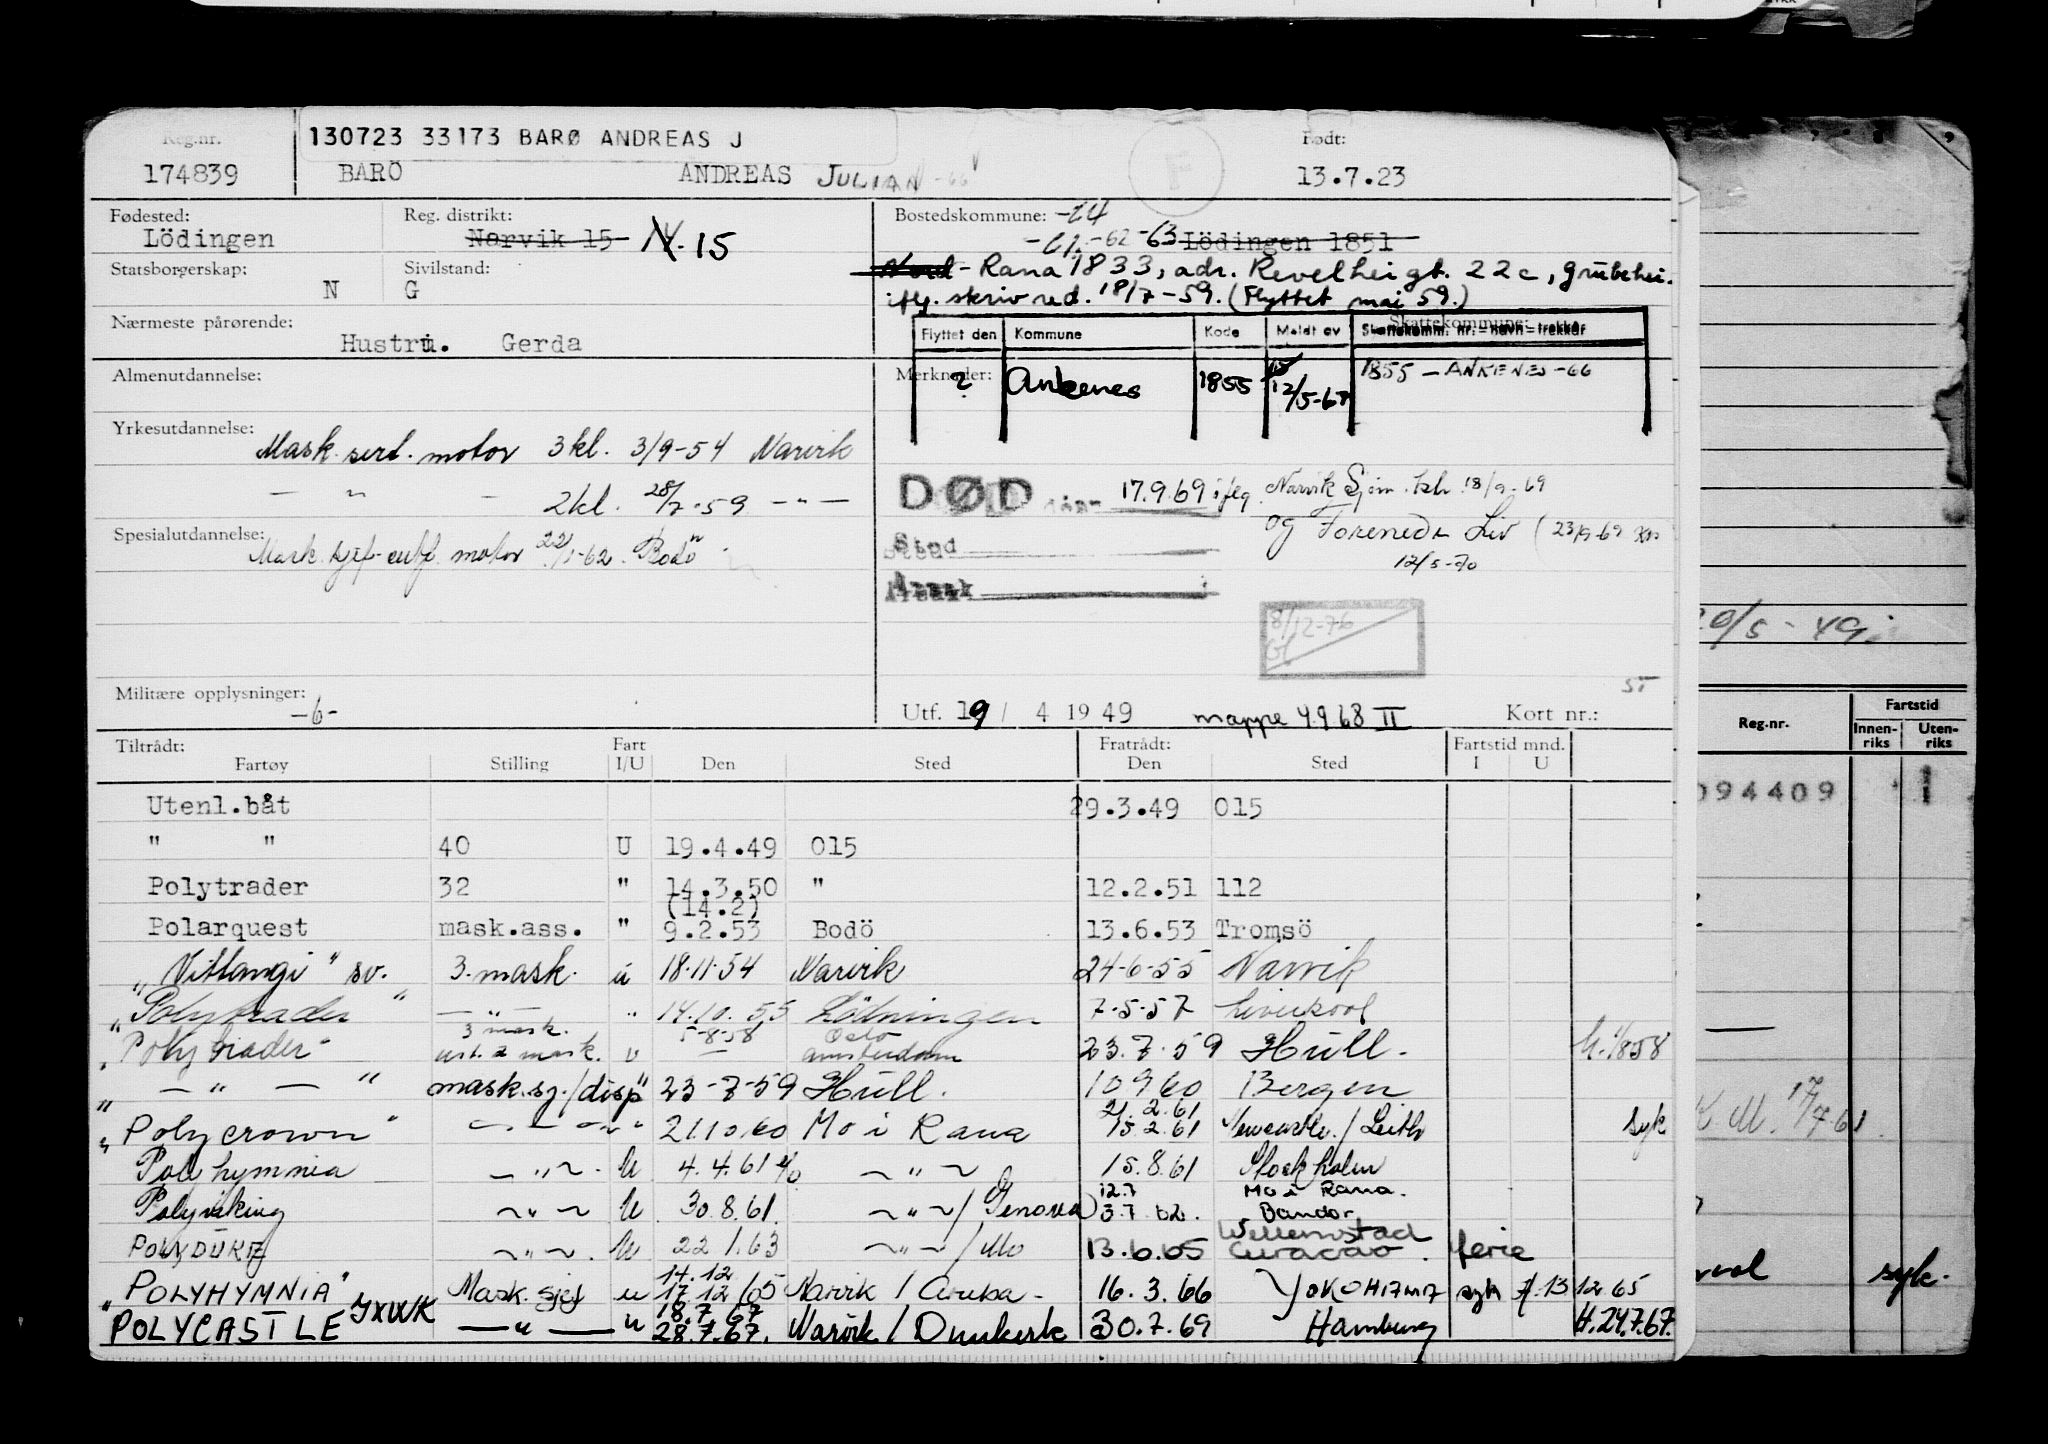 Reg.nr.
130723 33173 BARØ ANDREAS J
Født:
174839 BARÖ ANDREAS JULIAN -66
13.7.23
Fødested: Reg. distrikt: Bostedskommune: -64
Lödingen Narvik 15 N. 15 -61, -62 -63 Lödingen 1851
Statsborgerskap: Sivilstand:
Nord-Rana 1833, adr. Revelheigt. 22c, Grubehei.
N G
iflg. skriv red. 18/7-59. (Flyttet mai 59.)
Nærmeste pårørende: Skattekommune:
Hustru. Gerda
Flyttet den Kommune Kode Meldt av Skattekomm. nr. - navn - trekkår
Almenutdannelse: Merknader:
? Ankenes 1855 15 12/5-67 1855 - ANKENES -66
Yrkesutdannelse:
Mask. sert. motor 3 kl. 3/9-54 Narvik
- " - 2 kl. 28/7-59 - " -
DØD 17.9.69 iflg. Narvik Sjøm. 18/9-69
og Forenede Liv (23/9-69
12/5-70
Spesialutdannelse:
Mask. sjef motor 22/1-62 Bodö
Sted
Årsak
8/12-76
ST
Militære opplysninger:
-6-
Utf. 19/ 4 1949 mappe 4.9.68 II Kort nr.:
Tiltrådt: Fart Fratrådt: Fartstid mnd.
Fartøy Stilling I/U Den Sted Den Sted I U
Utenl.båt 29.3.49 015
" " 40 U 19.4.49 015
Polytrader 32 " 14.3.50 " 12.2.51 112
(14.2)
Polarquest mask.ass. " 9.2.53 Bodö 13.6.53 Tromsö
"Vittangi" sv. 3. mask. u 18.11.54 Narvik 24-6-55 Narvik
"Polytrader" - " - " 14.10.55 Lödingen 7-5-57 Liverpool
3 mask. 5-8-58 Oslo
"Polytrader" 2 mask. u - Amsterdam 23.7.59 Hull.
" - " - " mask.sj./disp " 23-7-59 Hull. 10 9 60 Bergen
21.2.61
"Polycrown" - " - " 21.10.60 Mo i Rana 15.2.61 Newcastle. / Leith syk
Polyhymnia - " - U 4.4.61 - " - 15.8.61 Stockholm
12.7 Mo i Rana.
Polyviking - " - U 30.8.61. - " - / Genova 3.7 62. Bandor
Willemstad
POLYDUKE - " - U 22 1.63 - " - / Mo 13.6.65 Curacao. ferie
14.12
"POLYHYMNIA" Mask. sjef u 17.12/65 Narvik / Aruba - 16.3.66 YOKOHAMA syk 13 12.65
18.7 67
POLYCASTLE JXWK - " - u 28.7.67. Narvik / Dunkerk 30.7.69 Hamburg H.24.7.67.
Reg.nr. Fartstid
Innen-riks Uten-riks
094409 1
17/7-61
syk.